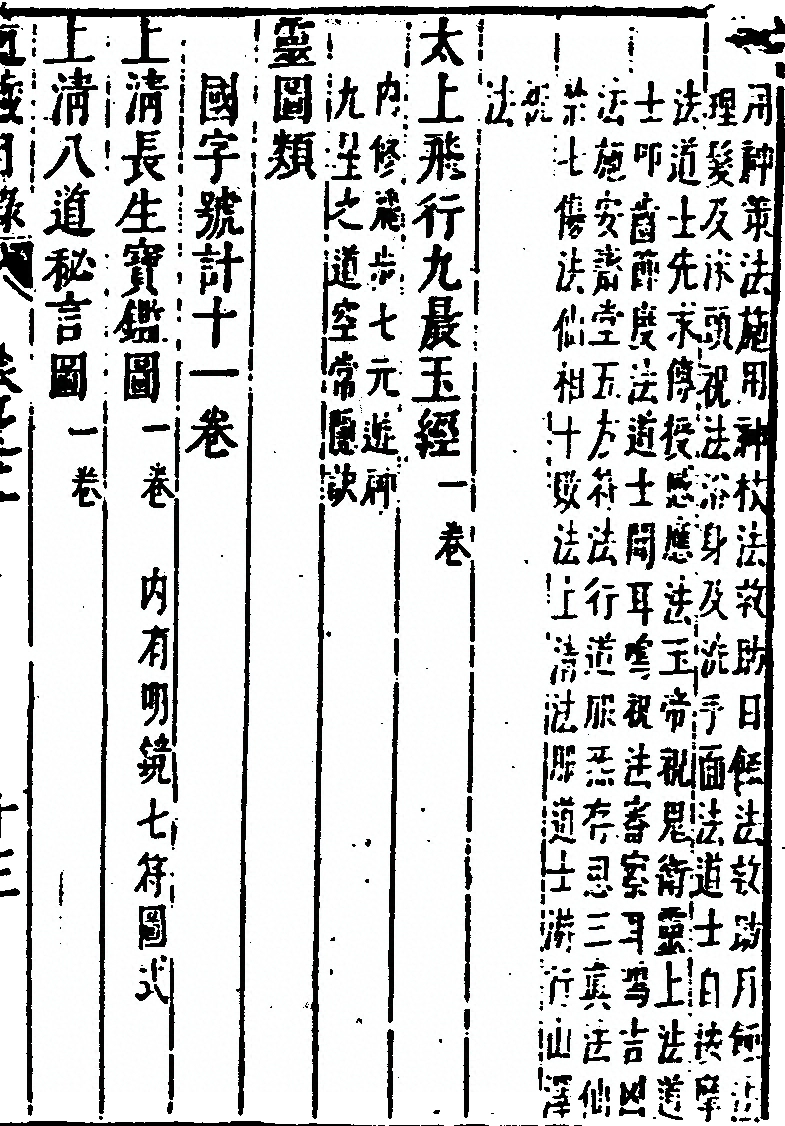 用神策法施用神杖法救助日蝕法救助月蝕法
理髮及沐頭祝法浴身及洗手面法道士白法摩
法道士先求傳授感應法玉帝祝鬼衛靈上法道
士叩齒節度法道士聞耳鳴祝法審察耳鳴吉凶
法施安齋堂五方符法行道服炁存思三真法仙
禁七傷法仙相十敗法上清法服道士遊行山澤
法
太上飛行九晨玉經一卷
內修飛步七元遊神
九星之道空常隱訣
靈圖類
國字號計十一卷
上清長生寶鑑圖一卷 內有明鏡七符圖式
上清八道秘言圖一卷
道藏目錄 十三